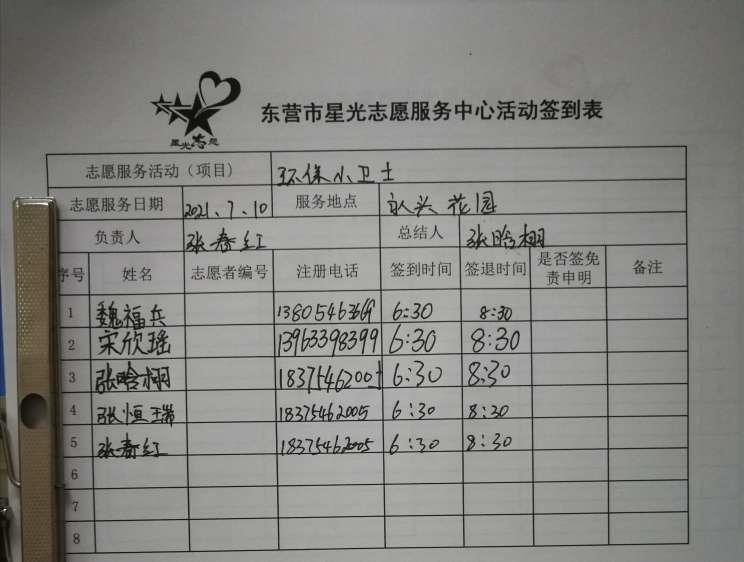 星光志愿
东营市星光志愿服务中心活动签到表
志愿服务活动（项目） 环保小卫士
志愿服务日期 2021.7.10 服务地点 花园
负责人 张春红 总结人 张晗栩
序号 姓名 志愿者编号 注册电话 签到时间 签退时间 是否签免责申明 备注
1 魏福兵 6:30 8:30
2 宋欣瑶 13963398399 6:30 8:30
3 张晗栩 6:30 8:30
4 张恒瑞 18375462005 6:30 8:30
5 张春红 18375462005 6:30 8:30
6
7
8